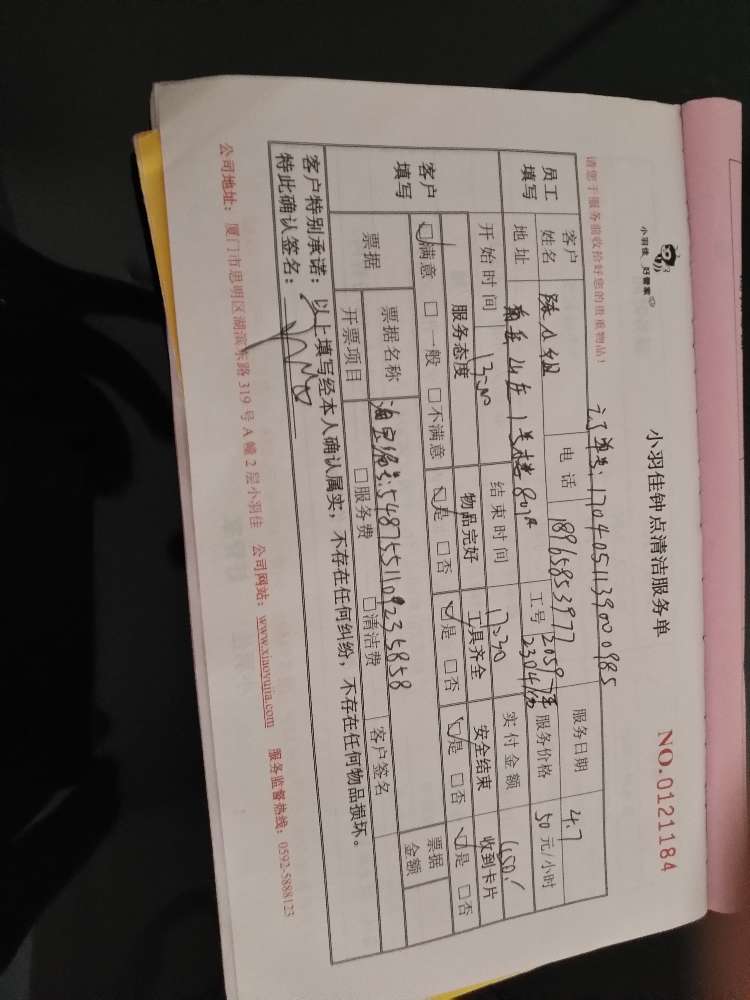 小羽佳 好管家
小羽佳钟点清洁服务单
NO.0121184
请您于服务前收拾好您的贵重物品!
订单号:170405113900098S
员工填写
客户姓名 陈小姐 电话 18965853977 服务日期 4.7
地址 山庄1号楼801# 工号 服务价格 50元/小时
开始时间 13:00 结束时间 17:30 实付金额 450.
客户填写
服务态度 物品完好 工具齐全 安全结束 收到卡片
☑满意 □一般 □不满意 ☑是 □否 ☑是 □否 ☑是 □否 ☑是 □否
票据 票据名称 油宝编号:5487551109235858 票据金额
开票项目 □服务费 □清洁费 客户签名
客户特别承诺:以上填写经本人确认属实,不存在任何纠纷,不存在任何物品损坏。
特此确认签名:
公司地址:厦门市思明区湖滨东路319号A幢2层小羽佳 公司网站:www.xiaoyujia.com 服务监督热线:0592-5888123